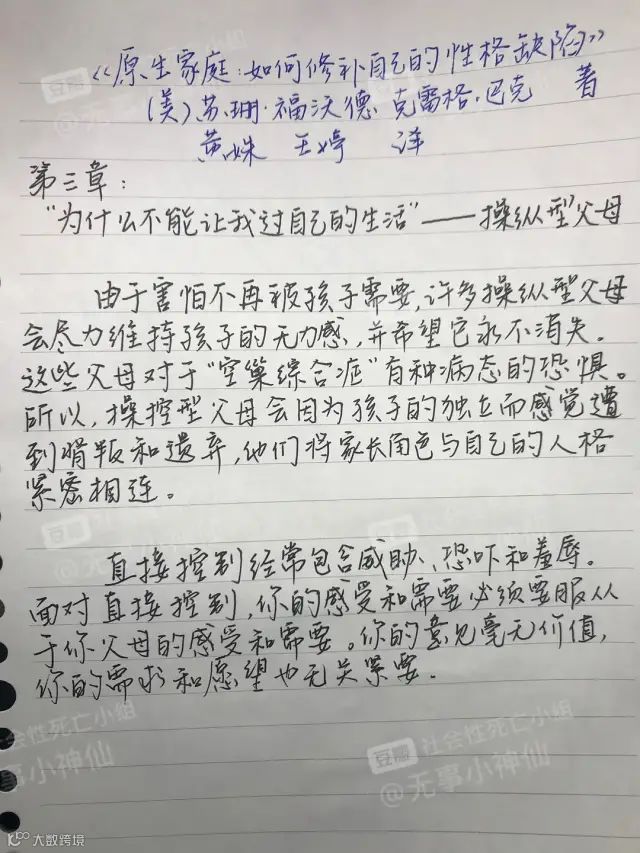 《原生家庭：如何修补自己的性格缺陷》
（美）苏珊·福沃德 克雷格·巴克 著
黄姝 王婷 译
第三章：
“为什么不能让我过自己的生活”——操纵型父母
由于害怕不再被孩子需要，许多操纵型父母
会尽力维持孩子的无力感，并希望它永不消失。
这些父母对于“空巢综合症”有种病态的恐惧。
所以，操控型父母会因为孩子的独立而感觉遭
到背叛和遗弃，他们将家长角色与自己的人格
紧密相连。
直接控制经常包含威胁、恐吓和羞辱。
面对直接控制，你的感受和需要必须要服从
于你父母的感受和需要。你的意见毫无价值，
你的需求和愿望也无关紧要．
豆瓣 社会性死亡小组
@无事小神仙
豆瓣 社会性死亡小组
@无事小神仙
大数跨境